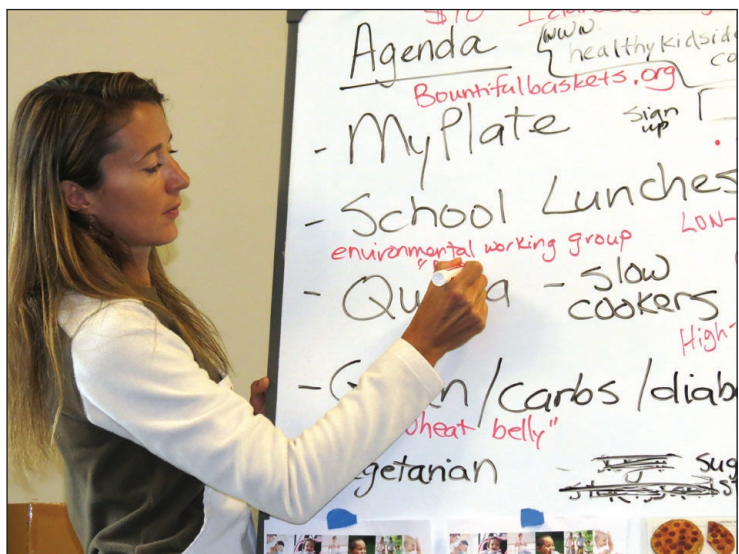 $10
Agenda
www.
healthykidside
co
Bountifulbaskets.org
- MyPlate
sign
up
- School Lunches
environmental working group
LOW-
- Qu a - slow
cookers
High-
- G n/carbs/diab
wheat belly"
getarian
sug